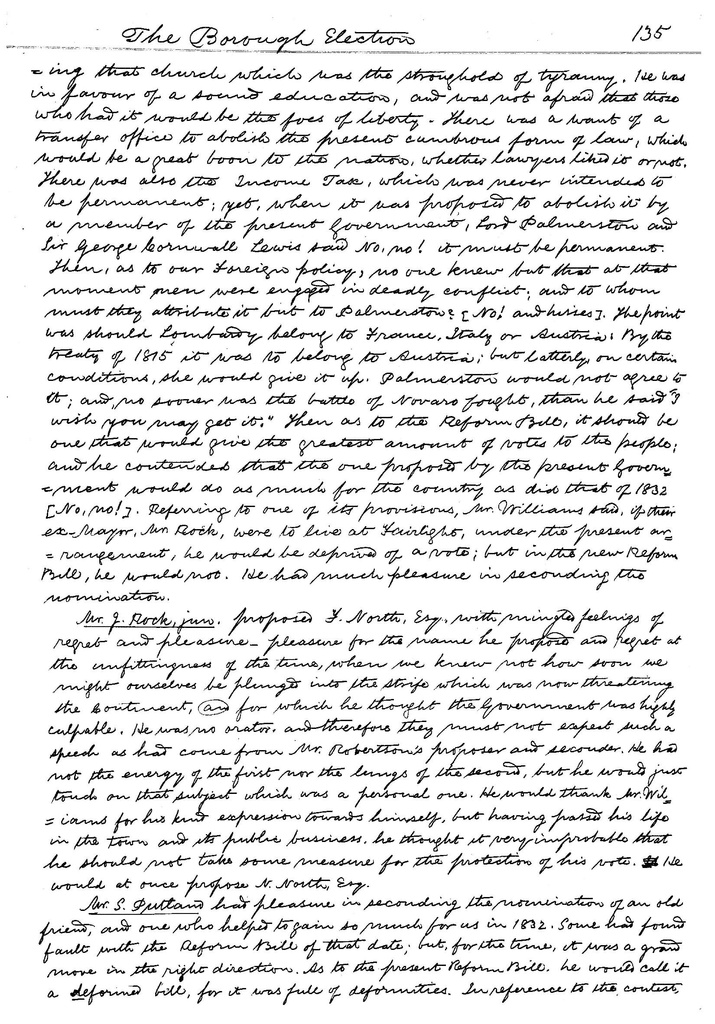 The Borough Election 135
=ing that church which was the stronghold of tyranny. He was
in favour of a sound education, and was not afraid that those
who had it would be the foes of liberty - There was a want of a
transfer office to abolish the present cumbrous form of law, which
would be a great boon to the nation, whether lawyers liked it or not.
There was also the Income Tax, which was never intended to
be permanent; yet, when it was proposed to abolish it by
a member of the present Government, Lord Palmerston and
Sir George Cornwall Lewis said No, no! it must be permanent.
Then, as to our Foreign policy, no one knew but that at that
moment men were engaged in deadly conflict; and to whom
must they attribute it but to Palmerston? [No! and hisses]. The point
was should Lombardy belong to France, Italy or Austria? By the
treaty of 1815 it was to belong to Austria; but latterly, on certain
conditions, she would give it up. Palmerston would not agree to
it; and, no sooner was the battle of Novaro fought, than he said "I
wish you may get it." Then as to the Reform Bill, it should be
one that would give the greatest amount of votes to the people;
and he contended that the one proposed by the present Govern=
=ment would do as much for the country as did that of 1832
[No, no!]. Referring to one of its provisions, Mr. Williams said, if their
ex-Mayor, Mr. Rock, were to live at Fairlight, under the present ar=
=rangement, he would be deprived of a vote; but in the new Reform
Bill, he would not. He had much pleasure in seconding the
nomination.
Mr. J. Rock, jun. proposed F. North, Esq. with mingled feelings of
regret and pleasure - pleasure for the name he proposed and regret at
the unfittingness of the time, when we knew not how soon we
might ourselves be plunged into the strife which was now threatening
the Continent, and for which he thought the Government was highly
culpable. He was no orator, and therefore they must not expect such a
speech as had come from Mr. Robertson's proposer and seconder. He had
not the energy of the first nor the lungs of the second, but he would just
touch on that subject which was a personal one. He would thank Mr. Wil=
=iams for his kind expression towards himself, but having passed his life
in the town and its public business, he thought it very improbable that
he should not take some measure for the protection of his vote. He
would at once propose N. North, Esq.
Mr. S. Putland had pleasure in seconding the nomination of an old
friend, and one who helped to gain so much for us in 1832. Some had found
fault with the Reform Bill of that date; but, for the time, it was a grand
move in the right direction. As to the present Reform Bill, he would call it
a deformed bill, for it was full of deformities. In reference to the contest,